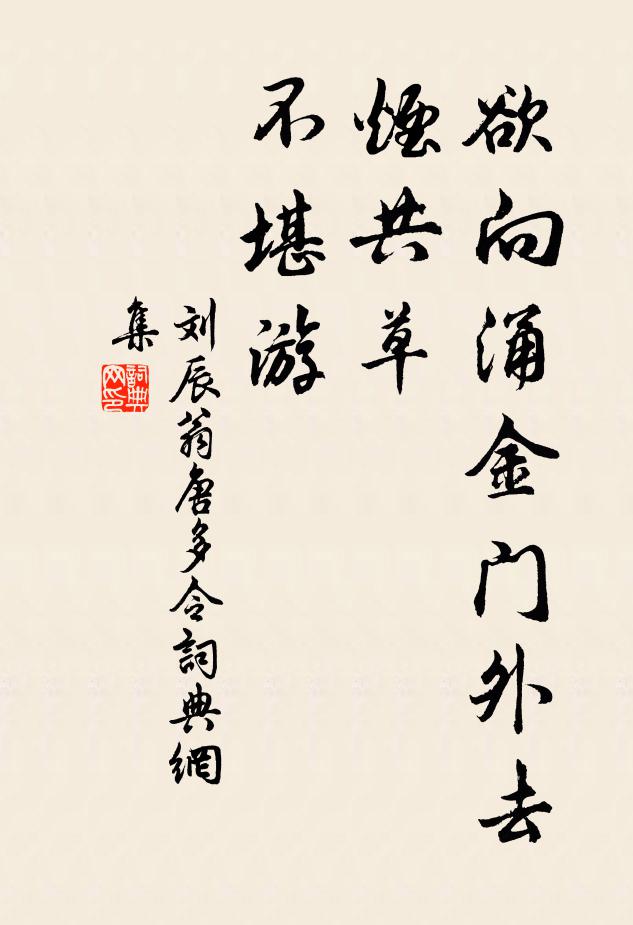 欲向涌金门外去
煙共草
不堪游
刘辰翁唐多令詞典網
集
詞典
网印